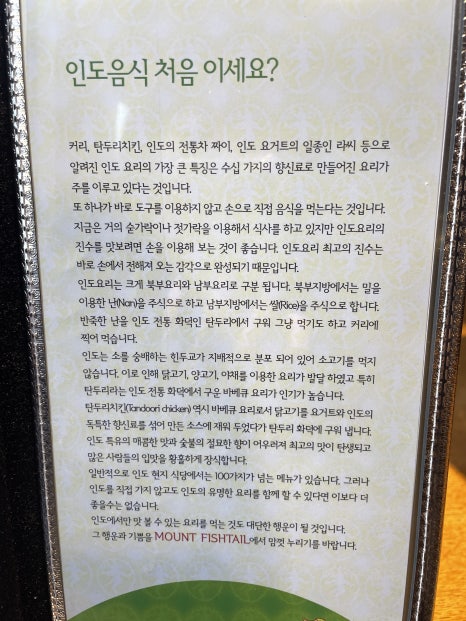 인도음식 처음 이세요?
커리, 탄두리치킨, 인도의 전통차 짜이, 인도 요거트의 일종인 라씨 등으로
알려진 인도 요리의 가장 큰 특징은 수십 가지의 향신료로 만들어진 요리가
주를 이루고 있다는 것입니다.
또 하나가 바로 도구를 이용하지 않고 손으로 직접 음식을 먹는다는 것입니다.
지금은 거의 숟가락이나 젓가락을 이용해서 식사를 하고 있지만 인도요리의
진수를 맛보려면 손을 이용해 보는 것이 좋습니다. 인도요리 최고의 진수는
바로 손에서 전해져 오는 감각으로 완성되기 때문입니다.
인도요리는 크게 북부요리와 남부요리로 구분 됩니다. 북부지방에서는 밀을
이용한 난(Nan)을 주식으로 하고 남부지방에서는 쌀(Rice)을 주식으로 합니다.
반죽한 난을 인도 전통 화덕인 탄두리에서 구워 그냥 먹기도 하고 커리에
찍어 먹습니다.
인도는 소를 숭배하는 힌두교가 지배적으로 분포 되어 있어 소고기를 먹지
않습니다. 이로 인해 닭고기, 양고기, 야채를 이용한 요리가 발달 하였고 특히
탄두리라는 인도 전통 화덕에서 구운 바베큐 요리가 인기가 높습니다.
탄두리치킨(Tandoori chicken) 역시 바베큐 요리로서 닭고기를 요거트와 인도의
독특한 향신료를 섞어 만든 소스에 재워 두었다가 탄두리 화덕에 구워 냅니다.
인도 특유의 매콤한 맛과 숯불의 절묘한 향이 어우러져 최고의 맛이 탄생되고
많은 사람들의 입맛을 황홀하게 장식합니다.
일반적으로 인도 현지 식당에서는 100가지가 넘는 메뉴가 있습니다. 그러나
인도를 직접 가지 않고도 인도의 유명한 요리를 함께 할 수 있다면 이보다 더
좋을수는 없습니다.
인도에서만 맛 볼 수 있는 요리를 먹는 것도 대단한 행운이 될 것입니다.
그 행운과 기쁨을 MOUNT FISHTAIL에서 맘껏 누리기를 바랍니다.